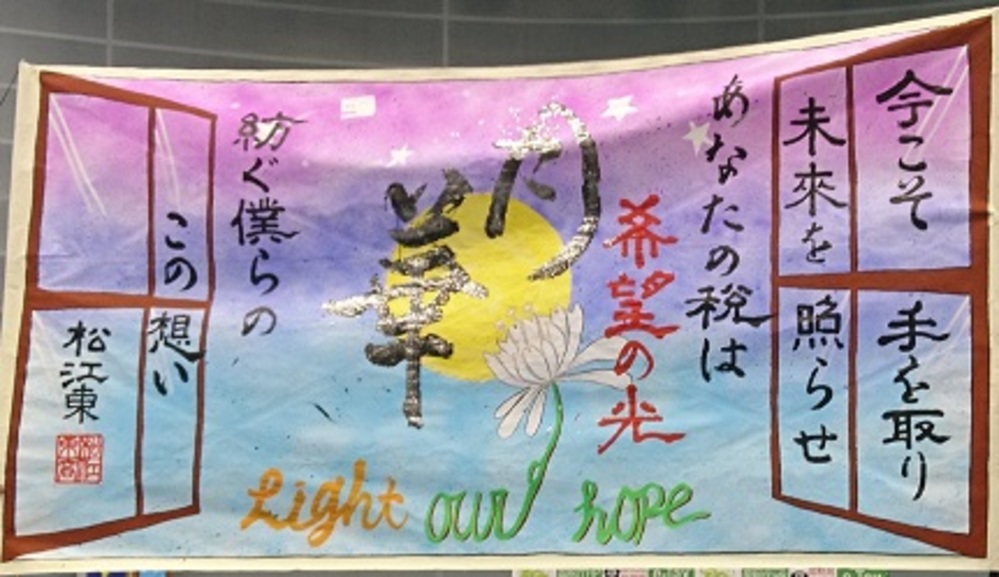 今こそ
手を取り
未來を
照らせ
あなたの税は
希望の光
月華
紡ぐ僕らの
この
想い
松江東
Light our hope